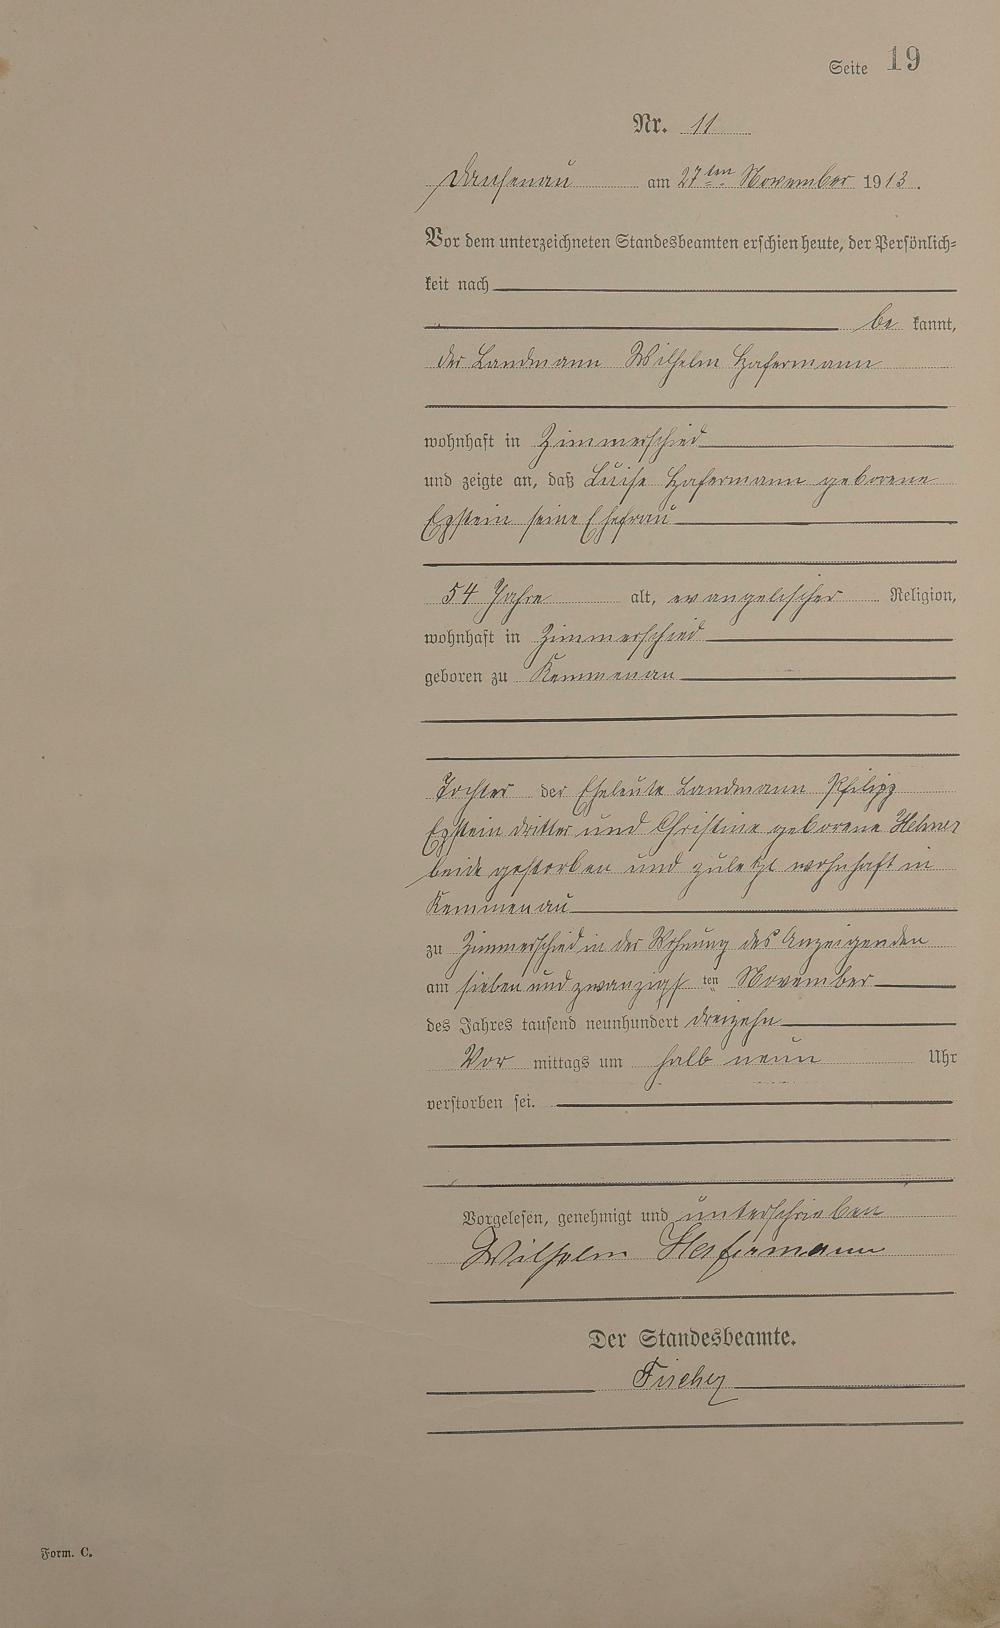 Seite 19
Nr. 11
Dausenau am 27ten November 1913.
Vor dem unterzeichneten Standesbeamten erschien heute, der Persönlich=
keit nach
be kannt,
der Landmann Wilhelm Hafermann
wohnhaft in Zimmerschied
und zeigte an, daß Luise Hafermann geborene
Epstein seine Ehefrau
54 Jahre alt, evangelischer Religion,
wohnhaft in Zimmerschied
geboren zu Kemmenau
Tochter der Eheleute Landmann Philipp
Epstein dritter und Christine geborene
beide gestorben und zuletzt wohnhaft in
Kemmenau
zu Zimmerschied in der Wohnung des Anzeigenden
am sieben und zwanzigsten November
des Jahres tausend neunhundert dreizehn
Vor mittags um halb neun Uhr
verstorben sei.
Vorgelesen, genehmigt und unterschrieben
Wilhelm Hafermann
Der Standesbeamte.
Form. C.